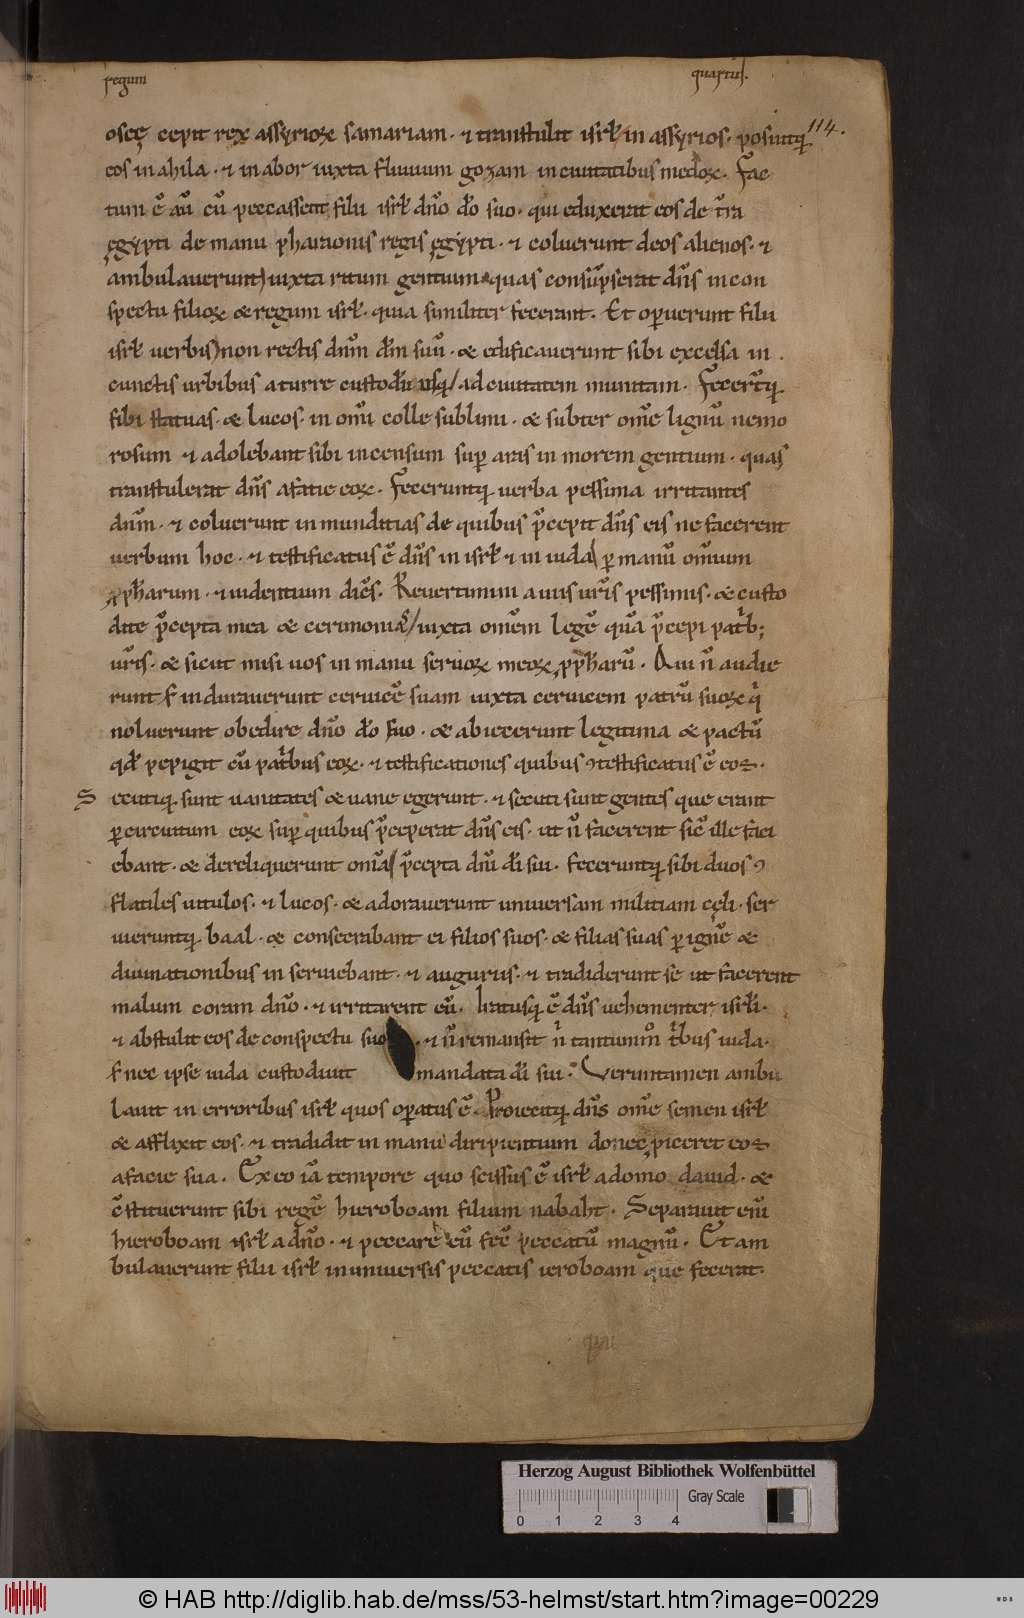 regum quartus.
114.
oseę cepit rex assyrioꝝ samariam · ⁊ transtulit isrł in assyrios · posuitq;
eos in ahila · ⁊ in abor iuxta fluuium gozam in ciuitatibus medoꝝ. Fac
tum ē aū cū peccassent filii isrł dn̄o dō suo · qui eduxerat eos de t̄ra
ęgypti de manu pharaonis regis ęgypti · ⁊ coluerunt deos alienos · ⁊
ambulauerunt iuxta ritum gentium quas consūpserat dn̄s in con
spectu filioꝝ & regum isrł · quia similiter fecerant. Et op̄uerunt filii
isrł uerbis non rectis dn̄m dm̄ suū · & edificauerunt sibi excelsa in
cunctis urbibus a turre custodū usq; ad ciuitatem munitam. Fecer̄tq;
sibi statuas · & lucos · in om̄i colle sublimi · & subter om̄e lignū nemo
rosum ⁊ adolebant sibi incensum sup̄ aras in morem gentium · quas
transtulerat dn̄s a facie eoꝝ. Feceruntq; uerba pessima irritantes
dn̄m · ⁊ coluerunt inmunditias de quibus p̄cepit dn̄s eis ne facerent
uerbum hoc · ⁊ testificatus ē dn̄s in isrł ⁊ in iuda ꝑ manū om̄ium
ꝓpħarum · ⁊ uidentium dicēs. Reuertimini a uiis ur̄is pessimis · & custo
dite p̄cepta mea & cerimonias iuxta omēm legē quā p̄cepi patrib;
ur̄is · & sicut misi uos in manu seruoꝝ meoꝝ ꝓpħarū. Qui n̄ audie
runt s; indurauerunt ceruicē suam iuxta ceruicem patrū suoꝝ qi
noluerunt obedire dn̄o dō suo · & abiecerunt legitima & pactū
qd̄ pepigit cū patribus eoꝝ · ⁊ testificationes quibus ꝯtestificatus ē eos ·
Secutiq; sunt uanitates & uane egerunt · ⁊ secuti sunt gentes que erant
ꝑ circuitum eoꝝ sup̄ quibus p̄ceperat dn̄s eis · ut n̄ facerent sic̄ ille faci
ebant · & dereliquerunt omīa p̄cepta dn̄i dī sui · feceruntq; sibi duos ꝯ
flatiles uitulos · ⁊ lucos · & adorauerunt uniuersam militiam cęli · ser
uieruntq; baal · & consecrabant ei filios suos · & filias suas ꝑ ignē &
diuinationibus inseruiebant · ⁊ auguriis · ⁊ tradiderunt se ut facerent
malum coram dn̄o · ⁊ irritarent eū. Iratusq; ē dn̄s uehementer isrłi ·
⁊ abstulit eos de conspectu suo · ⁊ n̄ remansit n̄ tantum̄m t̄bus iuda ·
s; nec ipse iuda custodiuit mandata dī sui. Veruntamen ambu
lauit in erroribus isrł quos op̄atus ē. Proiecitq; dn̄s om̄e semen isrł
& afflixit eos · ⁊ tradidit in manu diripientium donec ꝓiceret eos
a facie sua. Ex eo iā tempore quo scissus ē isrł a domo dauid · &
ꝯstituerunt sibi regē hieroboam filium nabaht. Separauit enī
hieroboam isrł a dn̄o · ⁊ peccare eū fec̄ peccatū magnū. Et am
bulauerunt filii isrł in uniuersis peccatis ieroboam que fecerat ·
Herzog August Bibliothek Wolfenbüttel
Gray Scale
0 1 2 3 4
© HAB http://diglib.hab.de/mss/53-helmst/start.htm?image=00229